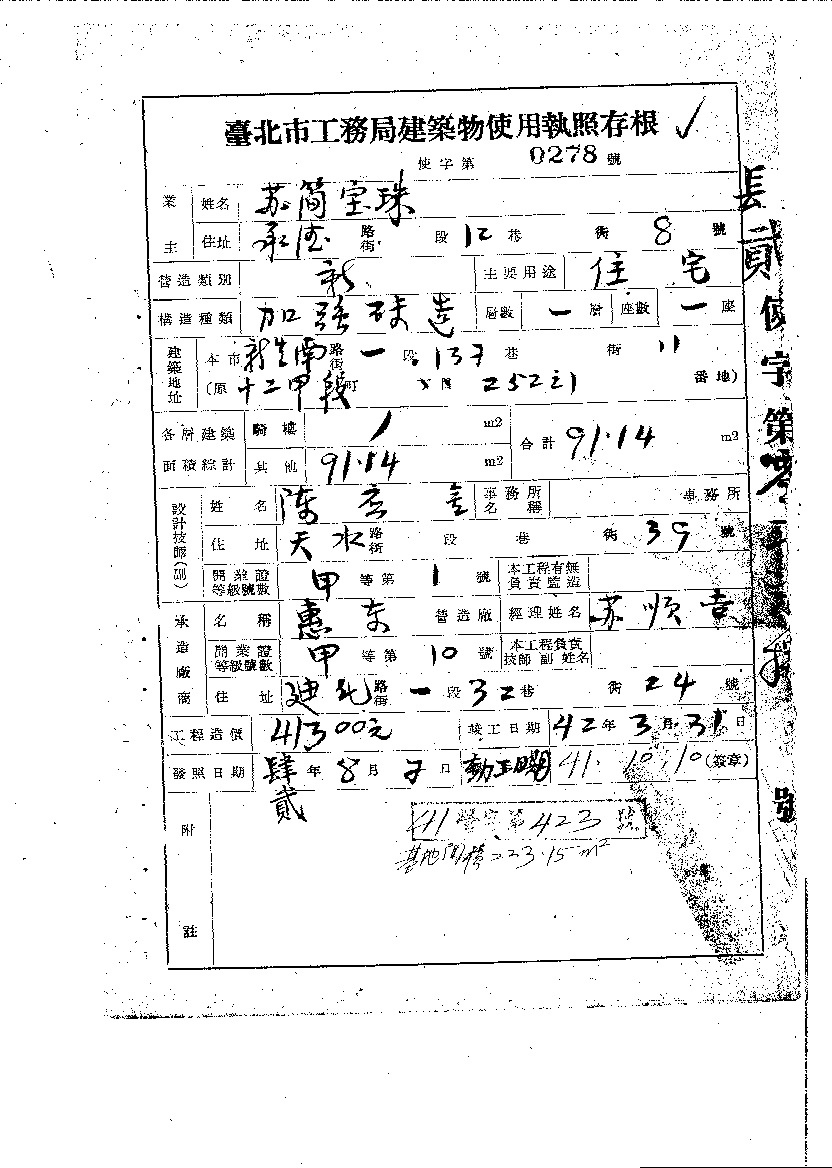 臺北市工務局建築物使用執照存根
使字第 0278 號
業主 姓名 苏簡宝珠
住址 承德 路街 段 12 巷 衖 8 號
營造類別 新 主要用途 住宅
構造種類 加强磚造 層數 一 層 座數 一 座
建築地址 本市 新生南 路街 一 段 137 巷 衖 11
(原 十二甲段 町 252之1 番地)
各層建築面積綜計 騎樓 / m2 合計 91.14 m2
其他 91.14 m2
設計技師(副) 姓名 陈 金 事務所名稱 事務所
住址 天水 路街 段 巷 衖 39 號
開業證等級號數 甲 等第 1 號 本工程有無負責監造
承造廠商 名稱 惠东 營造廠 經理姓名 苏順吉
開業證等級號數 甲 等第 10 號 本工程負責技師副姓名
住址 建北 路街 一 段 32 巷 衖 24 號
工程造價 41300元 竣工日期 42 年 3 月 31 日
發照日期 肆貳 年 8 月 日 動工日期 41.10.10 (簽章)
附註
41營字第423號
基地面積223.15m2
長貳使字第零 號